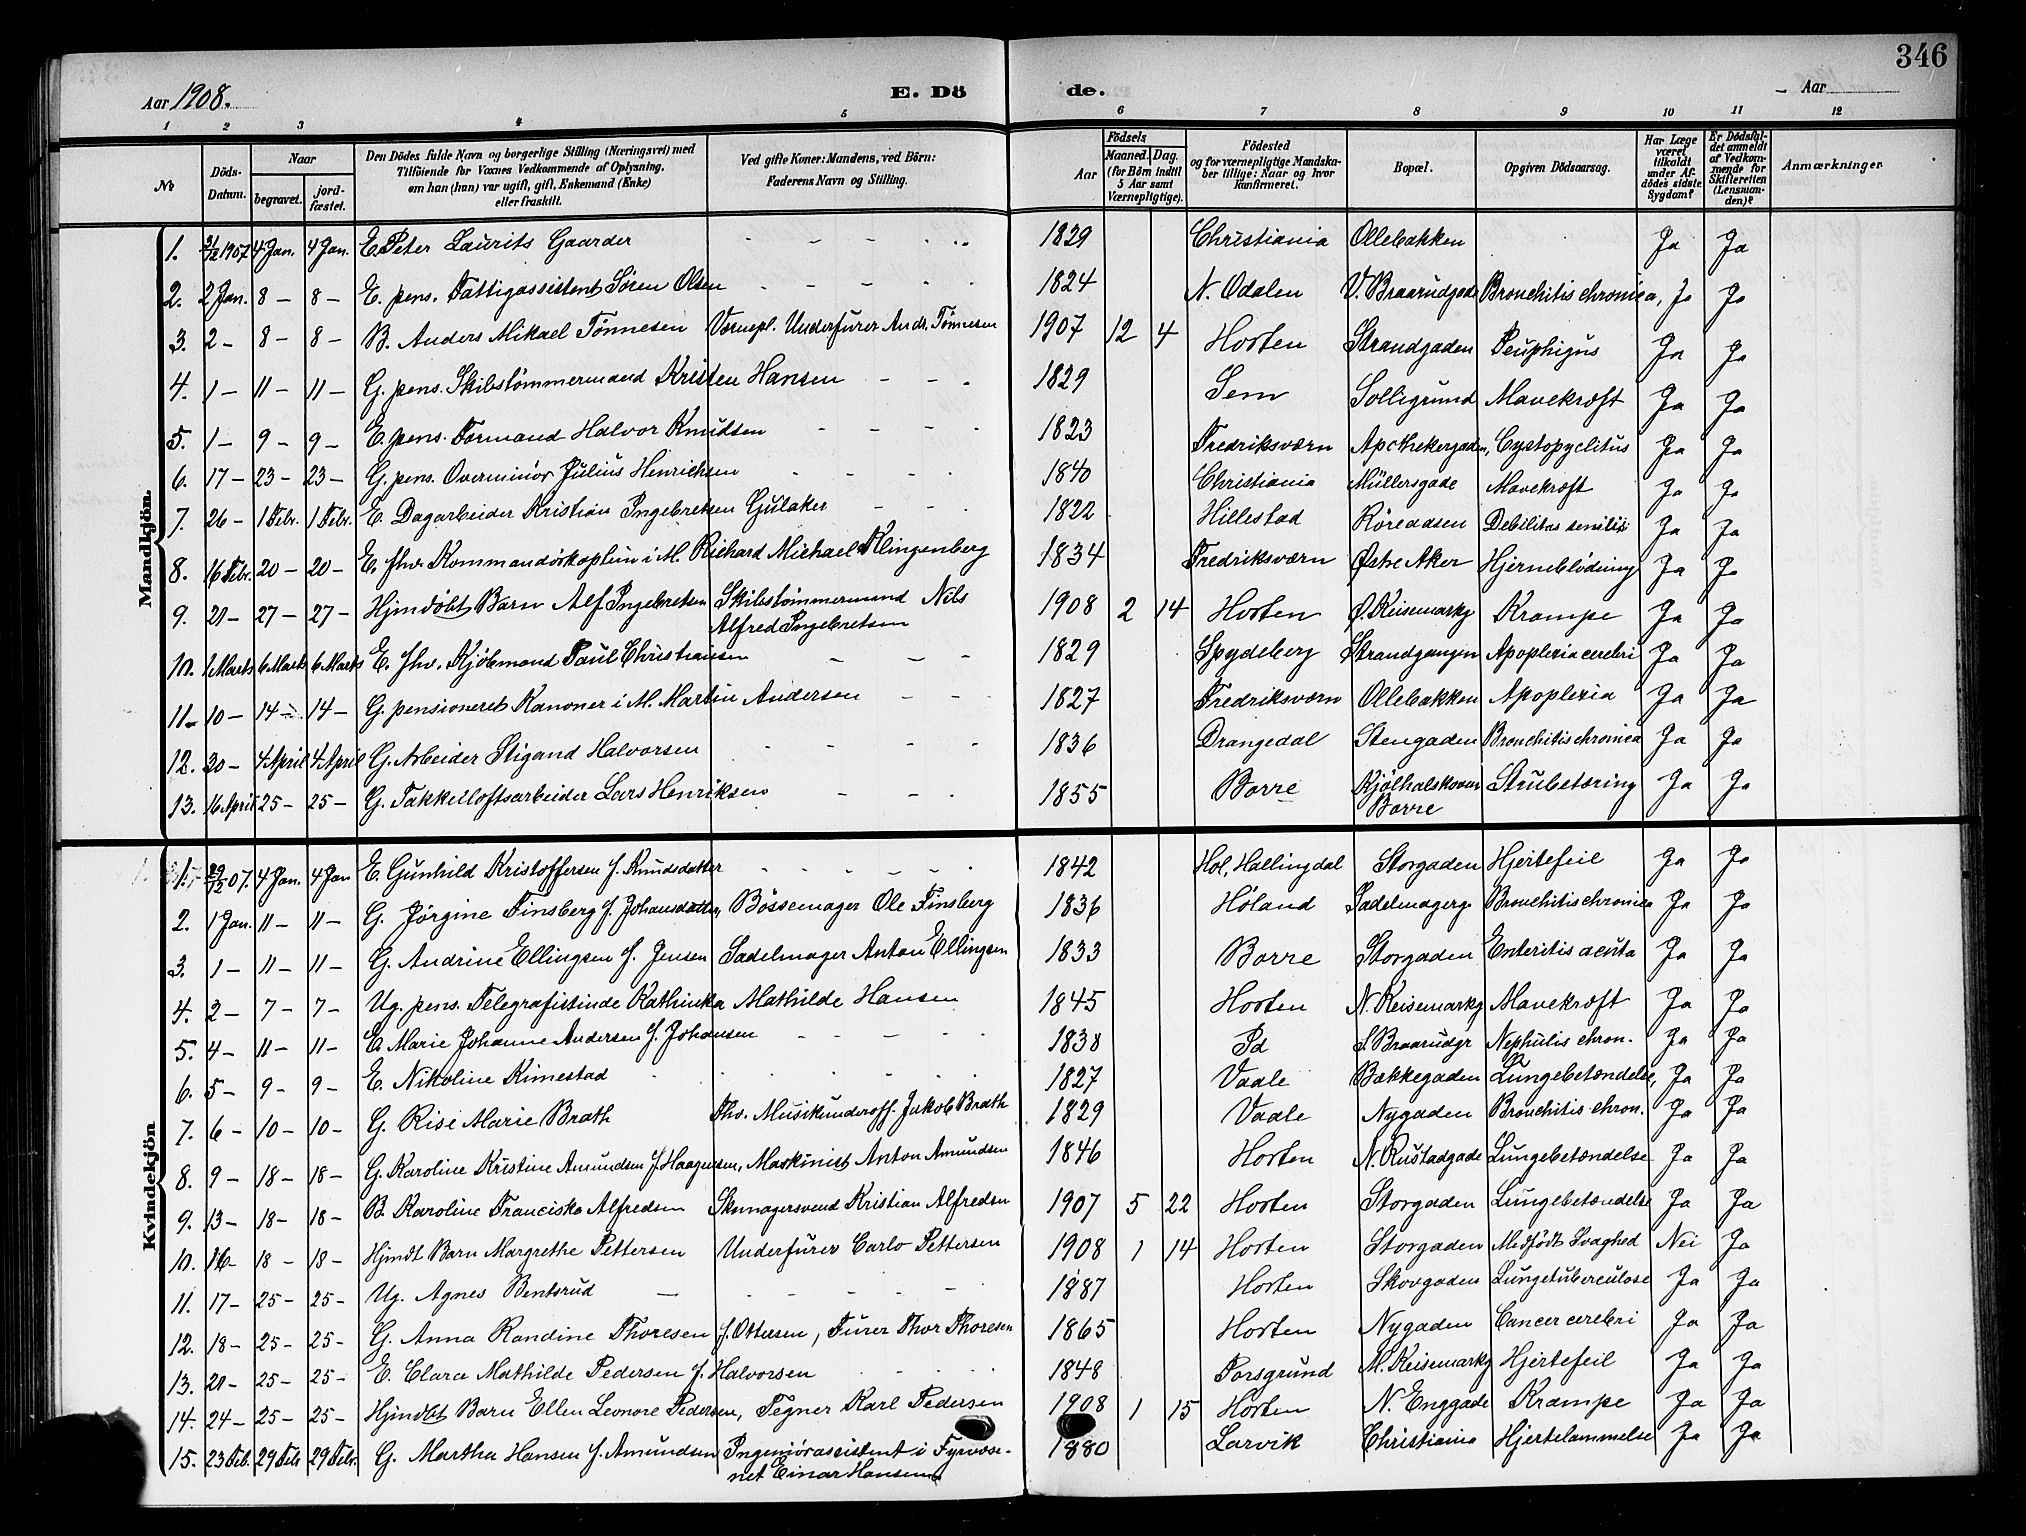 346
Aar 1908. E. Dö de. Aar
1 2 3 4 5 6 7 8 9 10 11 12
No
Döds-Datum.
Naar begravet. jordfæstet.
Den Dödes fulde Navn og borgerlige Stilling (Næringsvei) med Tilföiende for Voxnes Vedkommende af Oplysning, om han (hun) var ugift, gift, Enkemand (Enke) eller fraskilt.
Ved gifte Koner: Mandens, ved Börn: Faderens Navn og Stilling.
Födsels Aar Maaned. Dag. (for Börn indtil 5 Aar samt Værnepligtige).
Födested og for værnepligtige Mandskaber tillige: Naar og hvor konfirmeret.
Bopæl.
Opgiven Dödsaarsag.
Har Læge været tilkaldt under Afdödes sidste Sygdom?
Er Dödsfaldet anmeldt af Vedkommende for Skifteretten (Lensmanden)?
Anmærkninger
Mandkjön.
1. 31/12 1907 4 Jan. 4 Jan. E. Peter Laurits Gaarder - - - - 1829 Christiania Ollebakken Ja Ja
2. 2 Jan. 8 - 8 - E. pens. Fattigassistent Sören Olsen - - - - 1824 N. Odalen V. Braarudgade Bronchitis chronica, Ja Ja
3. 2 - 8 - 8 - B. Anders Mikael Tönnesen Værnepl. Underfurer Andr. Tönnesen 1907 12 4 Horten Strandgaden Pemphigus Ja Ja
4. 1 - 11 - 11 - G. pens. Skibstömmermand Kristen Hansen - - - 1829 Sem Solligrund Mavekræft Ja Ja
5. 1 - 9 - 9 - E. pens. Formand Halvor Knudsen - - - - 1823 Fredriksværn Apothekergaden, Cystopyelitus Ja Ja
6. 17 - 23 - 23 - G. pens. Overminör Julius Henrichsen - - - 1840 Christiania Müllersgade Mavekræft Ja Ja
7. 26 - 1 Febr. 1 Febr. E. Dagarbeider Kristian Ingebretsen Gulaker - - - 1822 Hillestad Röreaasen Debilitas senilis Ja Ja
8. 16 Febr. 20 - 20 - E. fhv. Kommandörkaptein i M. Richard Michael Klingenberg 1834 Fredriksværn Østre Aker Hjerneblödning Ja Ja
9. 21 - 27 - 27 - Hjmdöbt Barn Alf Ingebretsen Skibstömmermand Nils
Alfred Ingebretsen 1908 2 14 Horten Ø. Keisemarkg Krampe Ja Ja
10. 1 Marts 6 Marts 6 Marts E. fhv. Kjöbmand Paul Christiansen - - - 1829 Spydeberg Strandgangen Apoplexia cerebri Ja Ja
11. 10 - 14 - 14 - G. pensioneret Kanoner i M. Martin Andersen - - - 1827 Fredriksværn Ollebakken Apoplexia Ja Ja
12. 30 - 4 April 4 April G. Arbeider Stigand Halvorsen - - - - 1836 Drangedal Stengaden Bronchitis chronica Ja Ja
13. 16 April 25 - 25 - G. Takkelloftsarbeider Lars Henriksen - - - 1855 Borre Kjölhalskoven Strubetæring Ja Ja
Borre
Kvindekjön
1. 29/12 07. 4 Jan. 4 Jan E. Gunhild Kristoffersen f. Knudsdatter - - - - - 1842 Hol, Hallingdal Storgaden Hjertefeil Ja Ja
2. 1 Jan. 11 - 11 - G. Jörgine Finsberg f. Johansdatter, Bössemager Ole Finsberg 1836 Höland Sadelmagerg Bronchitis chronica Ja Ja
3. 1 - 11 - 11 - G. Andrine Ellingsen f. Jensen Sadelmager Anton Ellingsen 1833 Borre Storgaden Enteritis acuta Ja Ja
4. 2 - 7 - 7 - Ug. pens. Telegrafistinde Kathinka Mathilde Hansen 1845 Horten N. Keisemarkg Mavekræft Ja Ja
5. 4 - 11 - 11 - E. Marie Johanne Andersen f. Johansen - - - - 1838 Id S. Braarudgr Nephritis chron. Ja Ja
6. 5 - 9 - 9 - E. Nikoline Rimestad - - - - - 1827 Vaale Bækkegaden Lungebetændelse, Ja Ja
7. 6 - 10 - 10 - G. Rise Marie Brath Fhv. Musikunderoff. Jakob Brath 1829 Vaale Nygaden Bronchitis chron. Ja Ja
8. 9 - 18 - 18 - G. Karoline Kristine Amundsen f. Haagensen, Maskinist Anton Amundsen 1846 Horten N. Rustadgade Lungebetændelse Ja Ja
9. 13 - 18 - 18 - B. Karoline Franciska Alfredsen Skomagersvend Kristian Alfredsen 1907 5 22 Horten Storgaden Lungebetændelse Ja Ja
10. 16 - 18 - 18 - Hjmdt Barn Margrethe Pettersen Underfurer Carlo Pettersen 1908 1 14 Horten Storgaden Medfödt Svaghed Nei Ja
11. 17 - 25 - 25 - Ug. Agnes Bentsrud - - - - - 1887 Horten Skovgaden Lungetuberculose Ja Ja
12. 18 - 25 - 25 - G. Anna Randine Thoresen f. Ottersen, Furer Thor Thoresen 1865 Horten Nygaden Cancer cerebri Ja Ja
13. 21 - 25 - 25 - E. Clara Mathilde Pedersen f. Halvorsen - - - 1848 Porsgrund M. Keisemarkg Hjertefeil Ja Ja
14. 24 - 25 - 25 - Hjmdbt Barn Ellen Leonore Pedersen, Tegner Karl Pedersen 1908 1 15 Horten N. Enggade Krampe Ja Ja
15. 23 Feb. 29 Feb 29 Febr. G. Martha Hansen f. Amundsen Ingeniörassistent i Fyrvæse-
net Einar Hansen 1880 Larvik Christiania Hjertelammelse Ja Ja